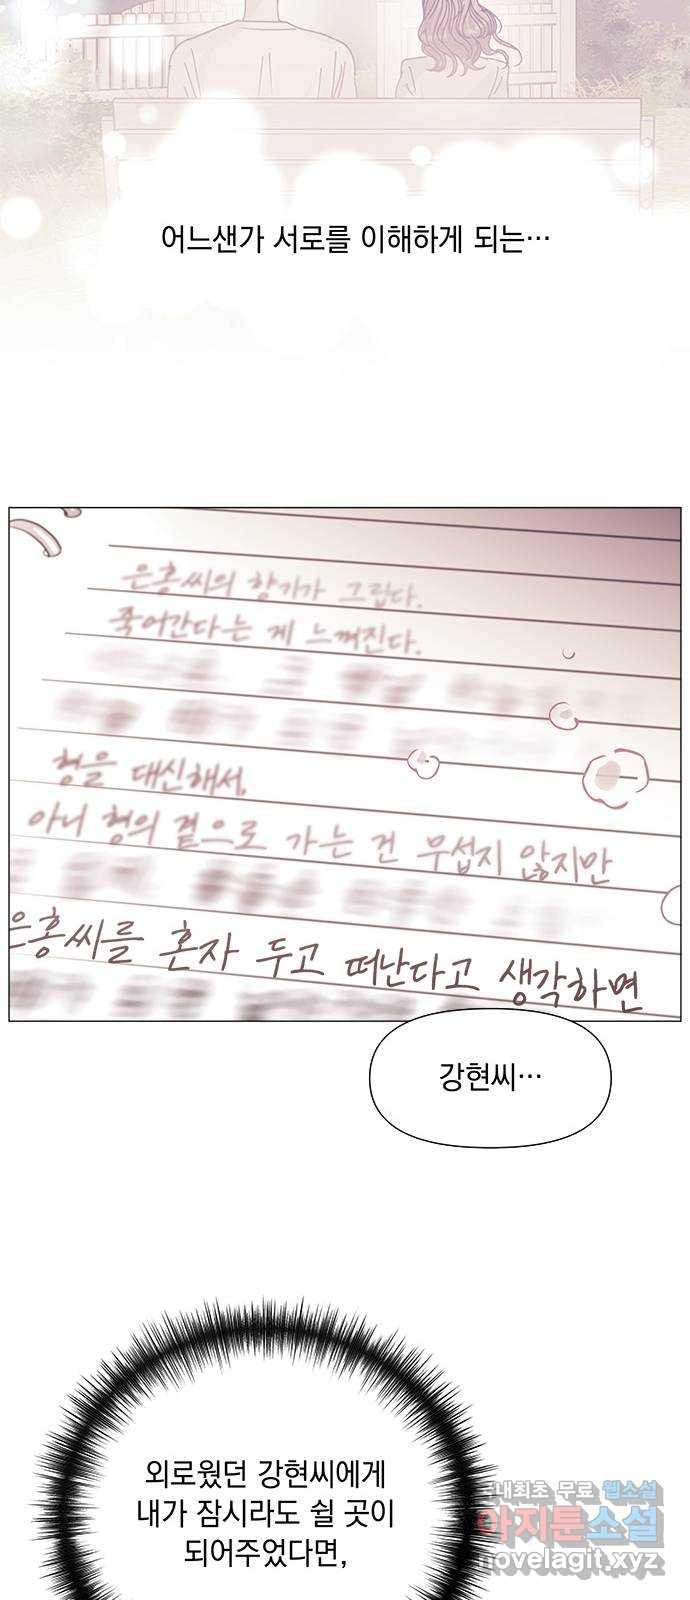 어느샌가 서로를 이해하게 되는…
은홍씨의 향기가 그립다.
죽어간다는 게 느껴진다.
형을 대신해서,
아니 형의 곁으로 가는 건 무섭지 않지만
은홍씨를 혼자 두고 떠난다고 생각하면
강현씨…
외로웠던 강현씨에게
내가 잠시라도 쉴 곳이
되어주었다면,
국내최초 무료 웹소설
아지툰소설
novelagit.xyz